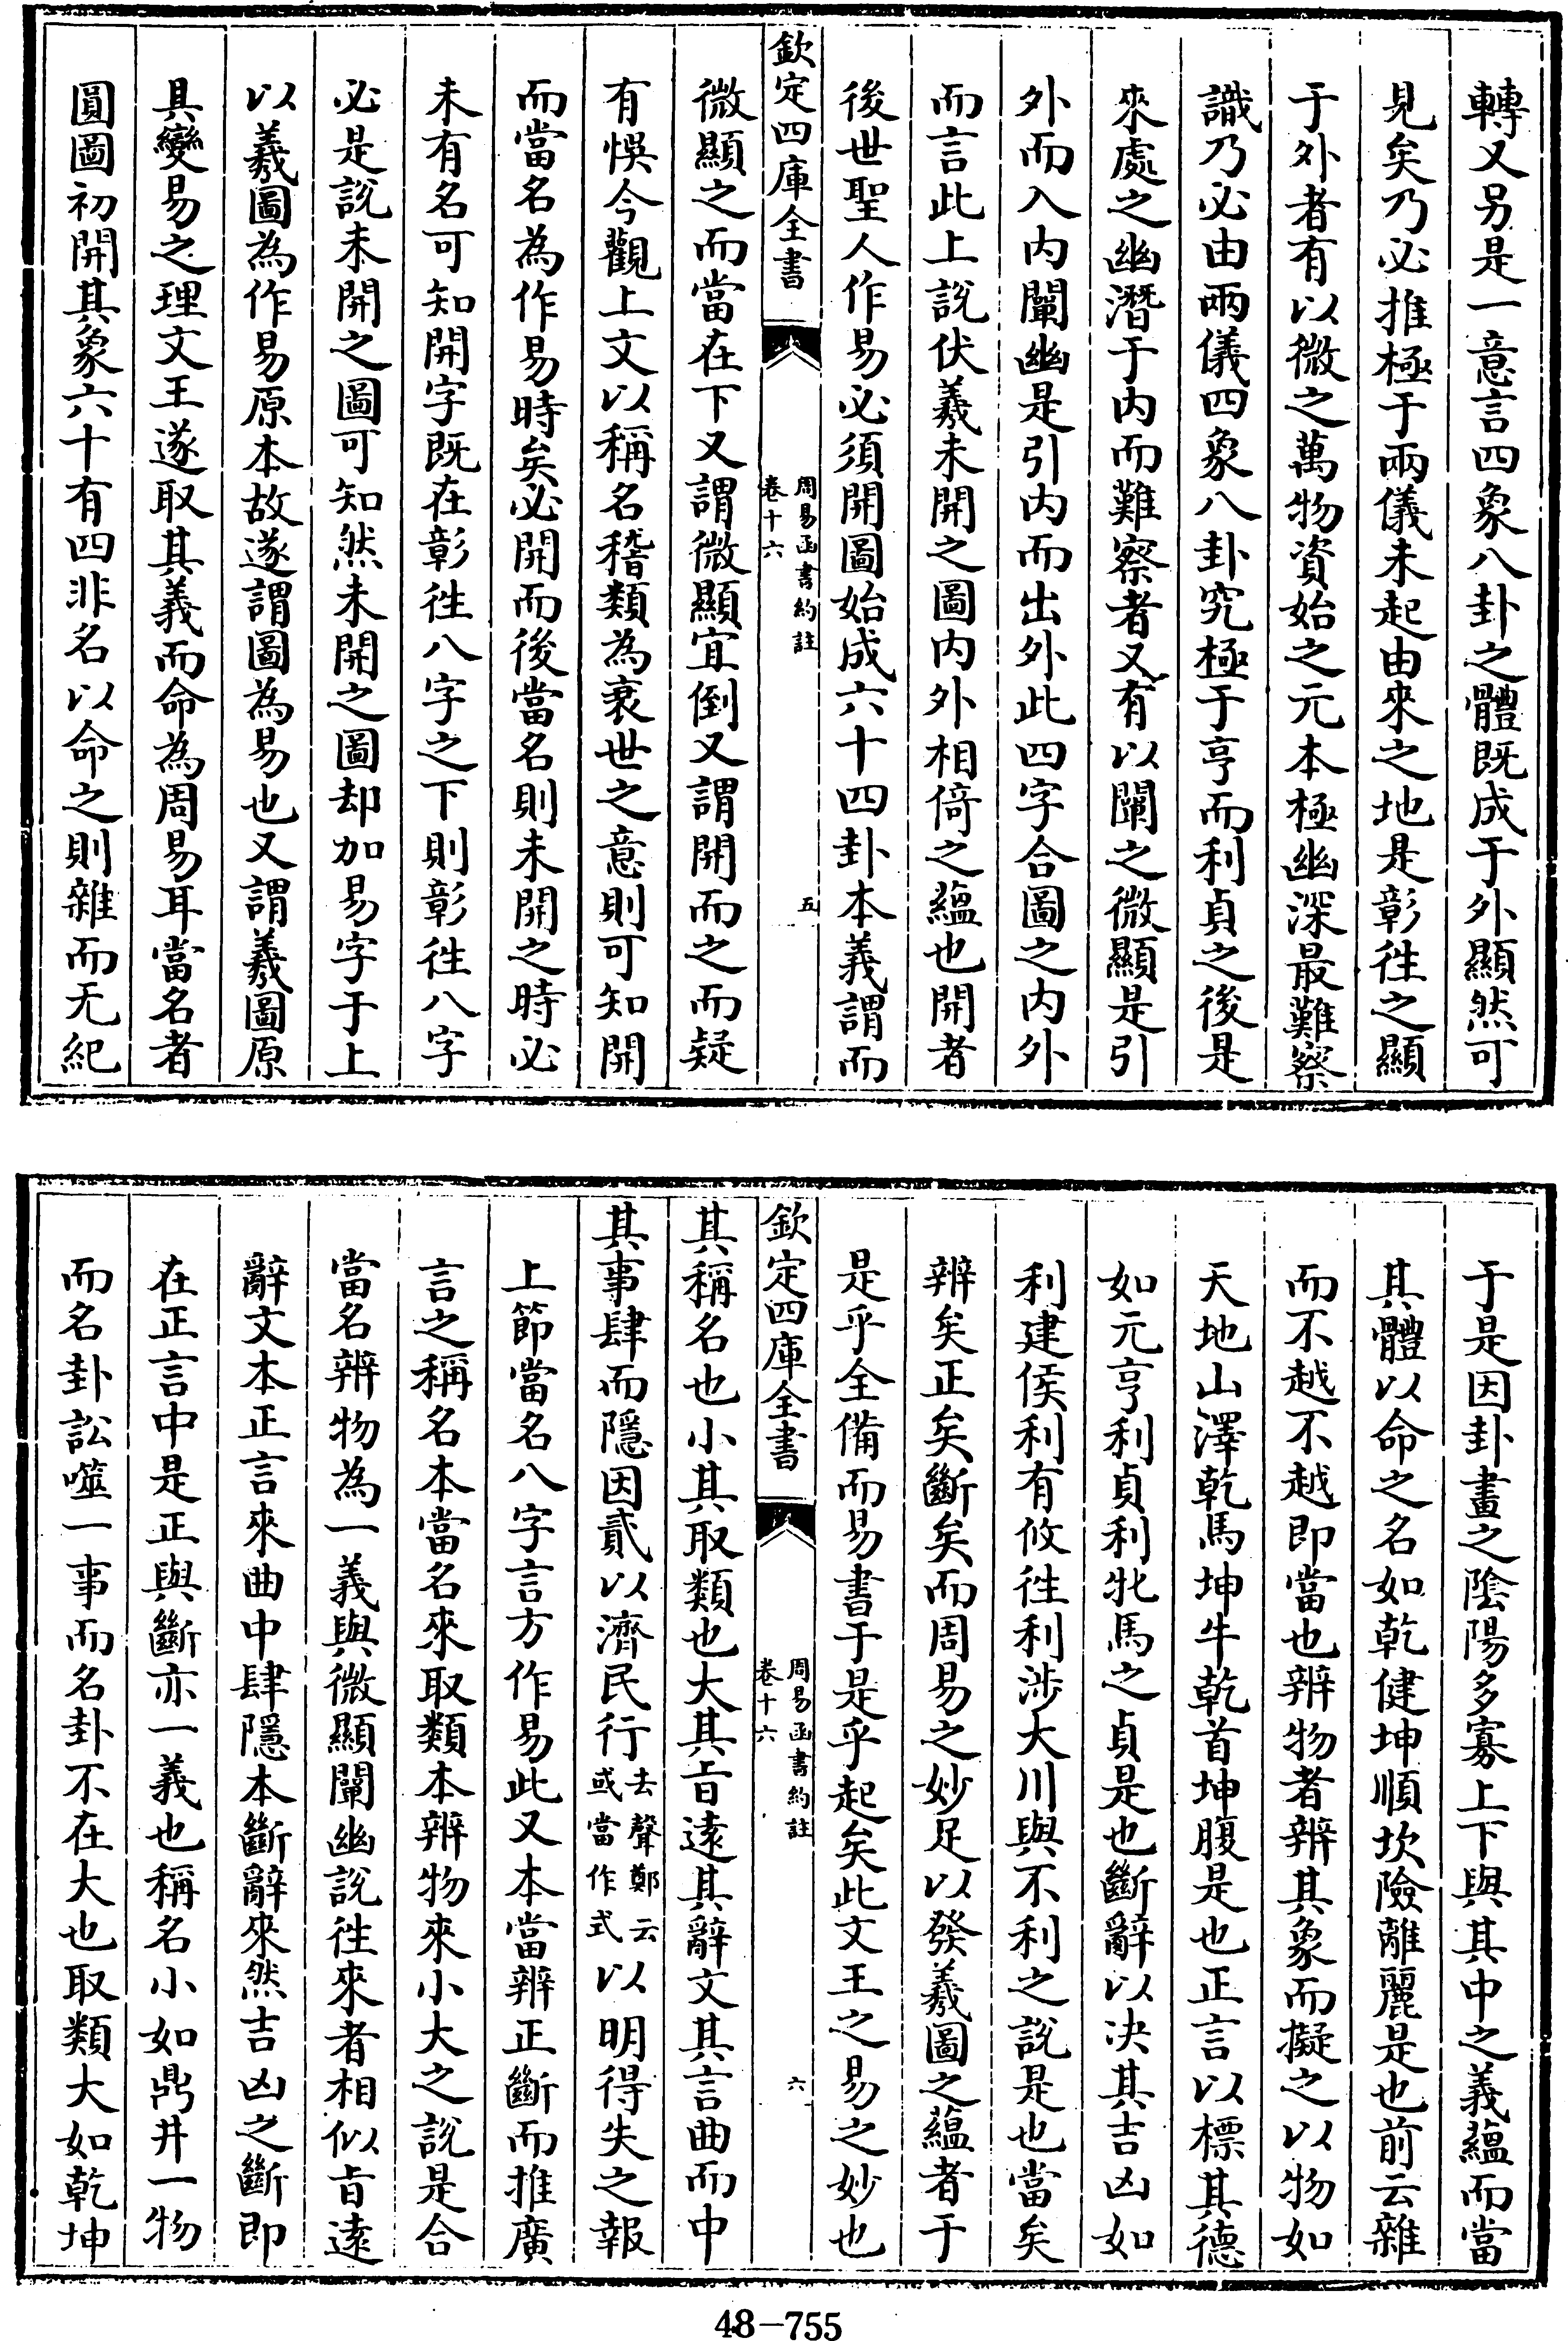 轉又另是一意言四象八卦之體既成于外顯然可
見矣乃必推極于兩儀未起由來之地是彰徃之顯
于外者有以微之萬物資始之元本極幽深最難察
識乃必由兩儀四象八卦究極于亨而利貞之後是
來處之幽潛于内而難察者又有以闡之微顯是引
外而入内闡幽是引内而出外此四字合圖之内外
而言此上說伏羲未開之圖内外相倚之蘊也開者
後世聖人作易必須開圖始成六十四卦本義謂而
欽定四庫全書
周易函書約註
卷十六
五
微顯之而當在下又謂微顯宜倒又謂開而之而疑
有悞今觀上文以稱名稽類為衰世之意則可知開
而當名為作易時矣必開而後當名則未開之時必
未有名可知開字既在彰徃八字之下則彰徃八字
必是說未開之圖可知然未開之圖却加易字于上
以羲圖為作易原本故遂謂圖為易也又謂羲圖原
具變易之理文王遂取其義而命為周易耳當名者
圓圖初開其象六十有四非名以命之則雜而无紀
于是因卦畫之陰陽多寡上下與其中之義蘊而當
其體以命之名如乾健坤順坎險離麗是也前云雜
而不越不越即當也辨物者辨其象而擬之以物如
天地山澤乾馬坤牛乾首坤腹是也正言以標其德
如元亨利貞利牝馬之貞是也斷辭以决其吉凶如
利建侯利有攸徃利涉大川與不利之說是也當矣
辨矣正矣斷矣而周易之妙足以發羲圖之蘊者于
是乎全備而易書于是乎起矣此文王之易之妙也
欽定四庫全書
周易函書約註
卷十六
六
其稱名也小其取類也大其旨遠其辭文其言曲而中
其事肆而隱因貳以濟民行去聲鄭云或當作式以明得失之報
上節當名八字言方作易此又本當辨正斷而推廣
言之稱名本當名來取類本辨物來小大之說是合
當名辨物為一義與微顯闡幽說徃來者相似旨遠
辭文本正言來曲中肆隱本斷辭來然吉凶之斷即
在正言中是正與斷亦一義也稱名小如鼎井一物
而名卦訟噬一事而名卦不在大也取類大如乾坤
48-755